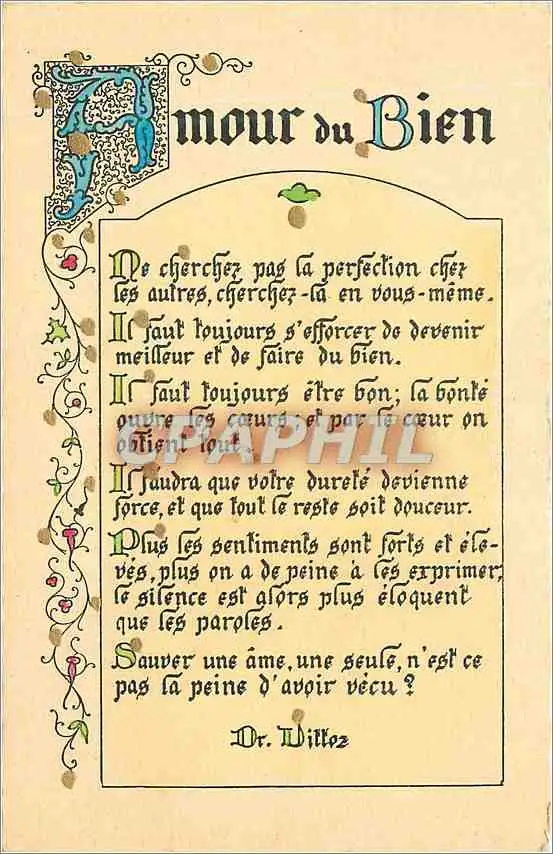 Amour du Bien
Ne cherchez pas la perfection chez
les autres, cherchez-la en vous-même.
Il faut toujours s'efforcer de devenir
meilleur et de faire du bien.
Il faut toujours être bon; la bonté
ouvre les cœurs; et par le cœur on
obtient tout.
Il faudra que votre dureté devienne
force, et que tout le reste soit douceur.
Plus les sentiments sont forts et éle-
vés, plus on a de peine à les exprimer;
le silence est alors plus éloquent
que les paroles.
Sauver une âme, une seule, n'est ce
pas la peine d'avoir vécu ?
Dr. Vittoz
CPAPHIL